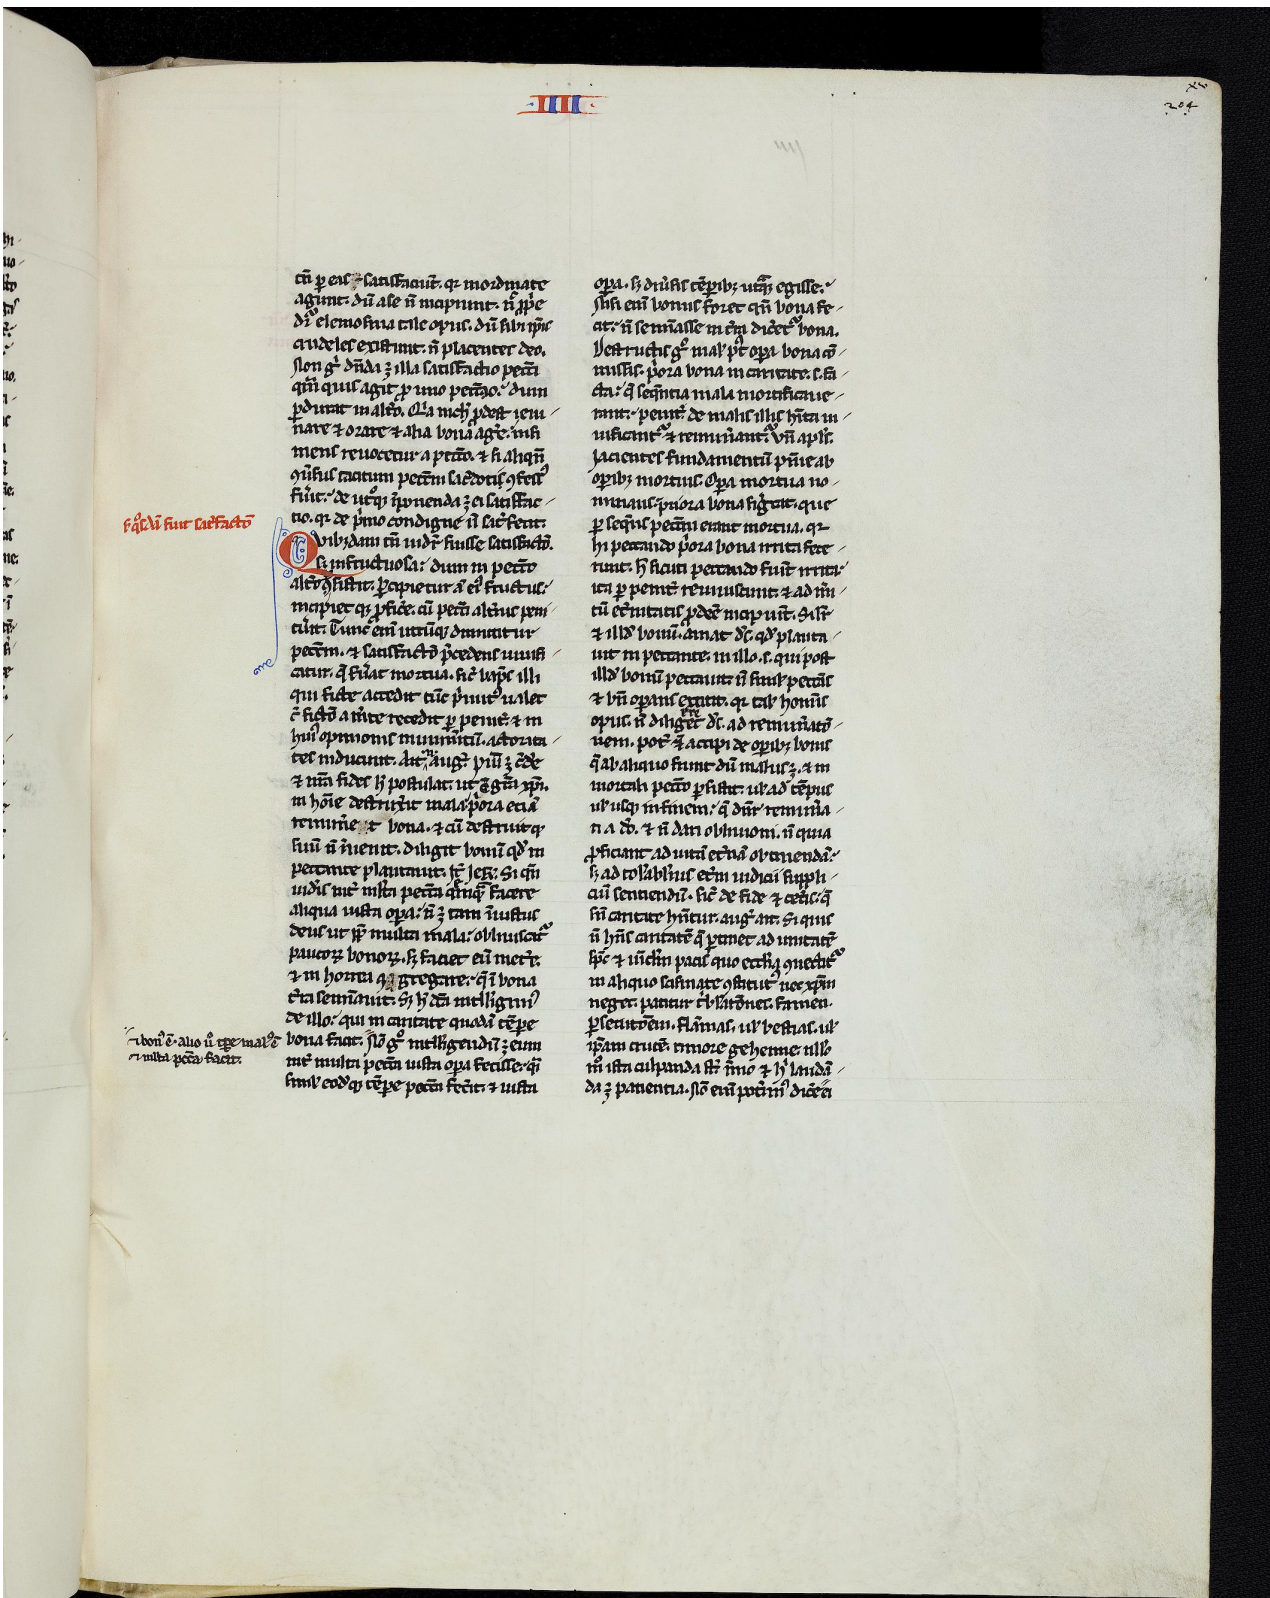 IIII
204
cũ p eas satisfaciūt. qr inordinate
agunt. dū a se ñ incipiunt. ñ ꝓp̃e
dr̃ elemosina tale opus. dū sibi ip̃is
crudeles existunt. ñ placentes deo.
Non g̊ dñda ꝫ illa satisfactio pecc̃i
qm̃ quis agit ꝓ uno pecc̃o. dum
ꝑdurat in alt̃o. Q̃a nich̃ ꝓdest ieiu
nare ⁊ orare ⁊ alia bona ag̃e. nisi
mens reuocetur a pecc̃o. ⁊ si aliqñ
ꝯũsus tacitum pecc̃m sac̃dotis ꝯfess᷒
fũit. de ut̊qꝫ ĩponenda ꝫ ei satisfac
tio. qr de p̃mo condigne ñ satisfecit.
s̃ q̊sdã fuit satisfactō
Quibꝫdam tñ uidr̃ fuisse satisfactō.
sꝫ infructuosa. dum in pecc̃o
alt̃o ꝑsistit. Percipietur ã ei᷒ fructus.
incipiet qꝫ ꝓfic̃e. cũ pecc̃i alt̃ius peni
tũit. Tunc eni͂ utrũqꝫ dimittitur
pecc̃m. ⁊ satisfactō p̃cedens uiuifi
catur. q̃ fũat mortua. sic̃ baps̃ illi
qui ficte accedit tũc p̃mit᷒ ualet
c̃ fictō a m̃te recedit p penit̃. ⁊ in
hui᷒ opinionis munim̃tũ. actorita
tes inducunt. Ait. n̄. Aug᷒. piũ ꝫ c̃de
⁊ nr̃a fides h̃ postulat. ut q̃ gr̃a xp̃i.
in hoĩe destruxit mala p̃ora etiã
remune t bona. ⁊ cũ destruit qꝫ
suũ ñ ĩuenit. diligit bonũ qd̃ in
peccante plantauit. It̃. Jer̃. Si qñ
uidĩs int̃ ml̃ta pecc̃a quẽqꝫ facere
aliqua iusta opa. ñ ꝫ tam ĩiustus
deus ut ꝓp̃ multa mala. obliuiscat᷑
paucorꝫ bonorꝫ. sꝫ faciet eũ met̃e.
⁊ in horrea ꝯgregare. q̃ ĩ bona
t̃ra semĩauit. Sꝫ h̃ dc̃m intelligim᷒
de illo. qui in caritate quodã tẽpe
⁊ bon᷒ ẽ. alio ũ tpe mal᷒ ẽ
⁊ ml̃ta pecc̃a facit.
bona facit. Nō g̊ intelligendũ ꝫ eum
int̃ multa pecc̃a iusta opa fecisse. q̃
simł eod̃ qꝫ tẽpe pecc̃a fec̃it. ⁊ iusta
opa. sꝫ diũsis tẽpibꝫ utraqꝫ egisse.
Nisi eni͂ bonus foret qñ bona fe
cit. ñ semĩasse in t̃ra dic̃et᷑ bona.
Destructis g̊ mał p̃t opa bona cō
missis. p̃ora bona in caritate. s. fa
cta. q̃ seqñtia mala mortificaue
rant. penit̃ de malis illis h̃ita ui
uificant᷑ ⁊ remuñant᷑. Vñ apłs.
Jacientes fundamentũ pñie ab
opibꝫ mortuis. Opa mortua no
minans. priora bona sig̃cat. que
ꝑ seqñs pecc̃m erant mortua. qr
hi peccando p̃ora bona irrita fece
runt. h̃ sicuti peccando fiũt irrita
ita ꝑ penit̃ reuiuiscunt. ⁊ ad m̃i
tũ et̃nitatis ꝓdee incipiũt. Simłr
⁊ illd̃ bonũ amat ds̃. qd̃ planta
uit in peccante. in illo. s. qui post
illd̃ bonũ peccauit. ñ simł peccãs
⁊ bñ operans extitit. qr talł hoĩis
opus. ñ diliger̃et ds̃. ad remuñatō
nem. pot̃ ⁊ accipi de opibꝫ bonis
q̃ ab aliquo fiunt dũ malus ꝫ. ⁊ in
mortali pecc̃o ꝑsistit. uł ad tẽpus
uł usqꝫ in finem. q̃ dñr remuña
ri a do̊. ⁊ ñ dari obliuioni. ñ quia
ꝓficiant ad uitã et̃nã obtinendã.
sꝫ ad tol̃abilius et̃ni iudicii suppli
ciũ sentiendũ. sic̃ de fide ⁊ cet̃is. q̃
sñ caritate hñtur. aug᷒. ait. Si quis
ñ hñs caritatẽ q̃ ptinet ad unitatẽ
sp̃c ⁊ uĩclm̃ pacis quo eccłia ꝯnectit᷑
in aliquo scismate ꝯstitut᷒ nec xp̃m
neget. patitur t̃bulatōnes. famem.
ꝑsecutōnem. flãmas. uł bestias. uł
ip̃am crucẽ. timore gehenne. nullo
m̊ ista culpanda st̃. ĩmo ⁊ h̃ laudã
da ꝫ patientia. Nō eni͂ pot̃im᷒ dic̃e ei